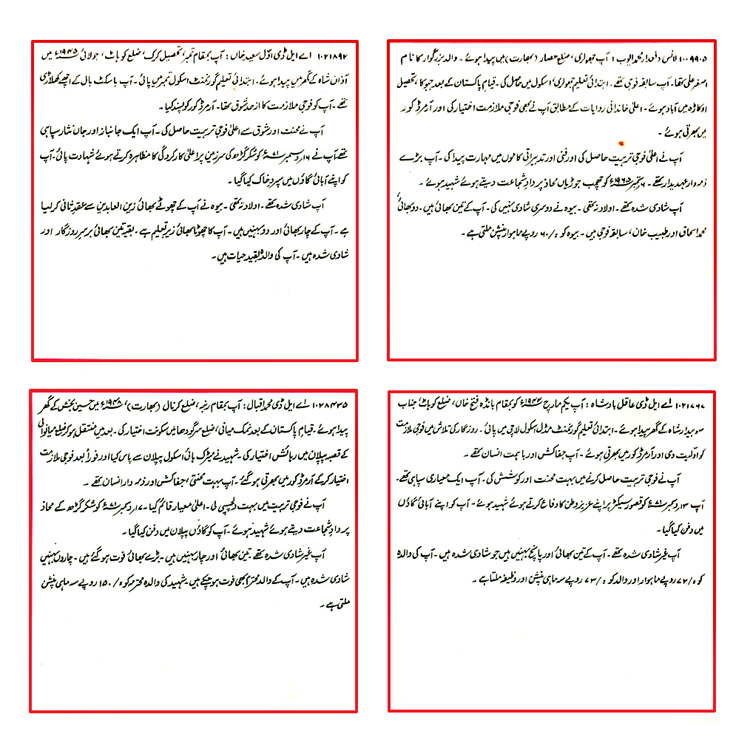 ۱۰۰۹۹۰۵ لانس دفعدار محمد ایوب : آپ تیہراری، ضلع حصار (بھارت) میں پیدا ہوئے ۔ والد بزرگوار کا نام
اصغر علی تھا۔ آپ سابقہ فوجی تھے ۔ ابتدائی تعلیم تیہراری، اسکول میں حاصل کی ۔ قیام پاکستان کے بعد جبوکا، تحصیل
اوکاڑہ میں آباد ہوئے ۔ اعلیٰ خاندانی روایات کے مطابق آپ نے بھی فوجی ملازمت اختیار کی اور آرمرڈ کور
میں بھرتی ہوئے ۔
آپ نے اعلیٰ فوجی تربیت حاصل کی اور فنی اور تدبیراتی کاموں میں مہارت پیدا کی ۔ آپ بڑے
ذمہ دار عہدیدار تھے ۔ ۶ ستمبر ۱۹۶۵ء کو چھمب جوڑیاں محاذ پر دادِ شجاعت دیتے ہوئے شہید ہوئے ۔
آپ شادی شدہ تھے ۔ اولاد نہ تھی ۔ بیوہ نے دوسری شادی نہیں کی ۔ آپ کے تین بھائی ہیں ۔ دو بھائی
محمد اسحاق اور طبیب خان، سابقہ فوجی ہیں ۔ بیوہ کو ۶۰/ روپے ماہوار پنشن ملتی ہے ۔
۱۰۲۱۸۹۲ اے ایل ڈی اوّل سعید خان : آپ بمقام تمبر، تحصیل کرک، ضلع کوہاٹ، جولائی ۱۹۴۵ء میں
آذان شاہ کے گھر میں پیدا ہوئے ۔ ابتدائی تعلیم گورنمنٹ اسکول تمبر میں پائی ۔ آپ باسکٹ بال کے اچھے کھلاڑی
تھے ۔ آپ کو فوجی ملازمت کا ازحد شوق تھا ۔ آرمرڈ کور کو پسند کیا ۔
آپ نے محنت اور شوق سے اعلیٰ فوجی تربیت حاصل کی ۔ آپ ایک جانباز اور جان نثار سپاہی
تھے آپ نے ۱۶ دسمبر ۷۱ء کو شکر گڑھ کی سرزمین پر اعلیٰ کارکردگی کا مظاہرہ کرتے ہوئے شہادت پائی ۔ آپ
کو اپنے آبائی گاؤں میں سپردِ خاک کیا گیا ۔
آپ شادی شدہ تھے ۔ اولاد نہ تھی ۔ بیوہ نے آپ کے چھوٹے بھائی زین العابدین سے عقد ثانی کر لیا
ہے ۔ آپ کے چار بھائی اور دو بہنیں ہیں ۔ آپ کا چھوٹا بھائی زیرِ تعلیم ہے ۔ بقیہ تین بھائی برسرِ روزگار اور
شادی شدہ ہیں ۔ آپ کی والدہ بقید حیات ہیں ۔
۱۰۲۱۷۶۷ اے ایل ڈی عاقل بادشاہ : آپ یکم مارچ ۱۹۴۴ء کو بمقام بانڈہ فتح خان، ضلع کوہاٹ جناب
سوبیدار شاہ کے گھر پیدا ہوئے ۔ ابتدائی تعلیم گورنمنٹ مڈل اسکول لاچی میں پائی ۔ روزگار کی تلاش میں فوجی ملازمت
کو اوّلیت دی اور آرمرڈ کور میں بھرتی ہوئے ۔ آپ جفاکش اور باہمت انسان تھے ۔
آپ نے فوجی تربیت حاصل کرنے میں بہت محنت اور کوشش کی ۔ آپ ایک معیاری سپاہی تھے ۔
آپ ۳ دسمبر ۷۱ء کو قصور سیکٹر پر اپنے عزیز وطن کا دفاع کرتے ہوئے شہید ہوئے ۔ آپ کو اپنے آبائی گاؤں
میں دفن کیا گیا ۔
آپ غیر شادی شدہ تھے ۔ آپ کے تین بھائی اور پانچ بہنیں ہیں جو شادی شدہ ہیں ۔ آپ کی والدہ
کو ۷۲/ روپے ماہوار اور والد کو ۷۳/ روپے سہ ماہی پنشن اور وظیفہ ملتا ہے ۔
۱۰۲۸۴۳۵ اے ایل ڈی محمد اقبال : آپ بمقام رنبہ، ضلع کرنال (بھارت)، ۱۹۴۵ء میں حسین بخش کے گھر
پیدا ہوئے ۔ قیام پاکستان کے بعد نمک میانی، ضلع سرگودھا میں سکونت اختیار کی ۔ بعد میں منتقل ہو کر ضلع میانوالی
کے قصبہ پپلاں میں رہائش اختیار کی ۔ شہید نے میٹرک ہائی اسکول پپلاں سے پاس کیا اور فوراً بعد فوجی ملازمت
اختیار کر کے آرمرڈ کور میں بھرتی ہو گئے ۔ آپ بہت محنتی، جفاکش اور ذمہ دار انسان تھے ۔
آپ نے فوجی تربیت میں بہت دلچسپی لی ۔ اعلیٰ معیار قائم کیا ۔ ۱۷ دسمبر ۷۱ء کو شکر گڑھ کے محاذ
پر دادِ شجاعت دیتے ہوئے شہید ہوئے ۔ آپ کو گاؤں پپلاں میں دفن کیا گیا ۔
آپ غیر شادی شدہ تھے ۔ تین بھائی اور چار بہنیں ہیں ۔ بڑے بھائی فوت ہو گئے ہیں ۔ چاروں بہنیں
شادی شدہ ہیں ۔ آپ کے والد محترم بھی فوت ہو چکے ہیں ۔ شہید کی والدہ محترمہ کو ۱۵۰/ روپے سہ ماہی پنشن
ملتی ہے ۔